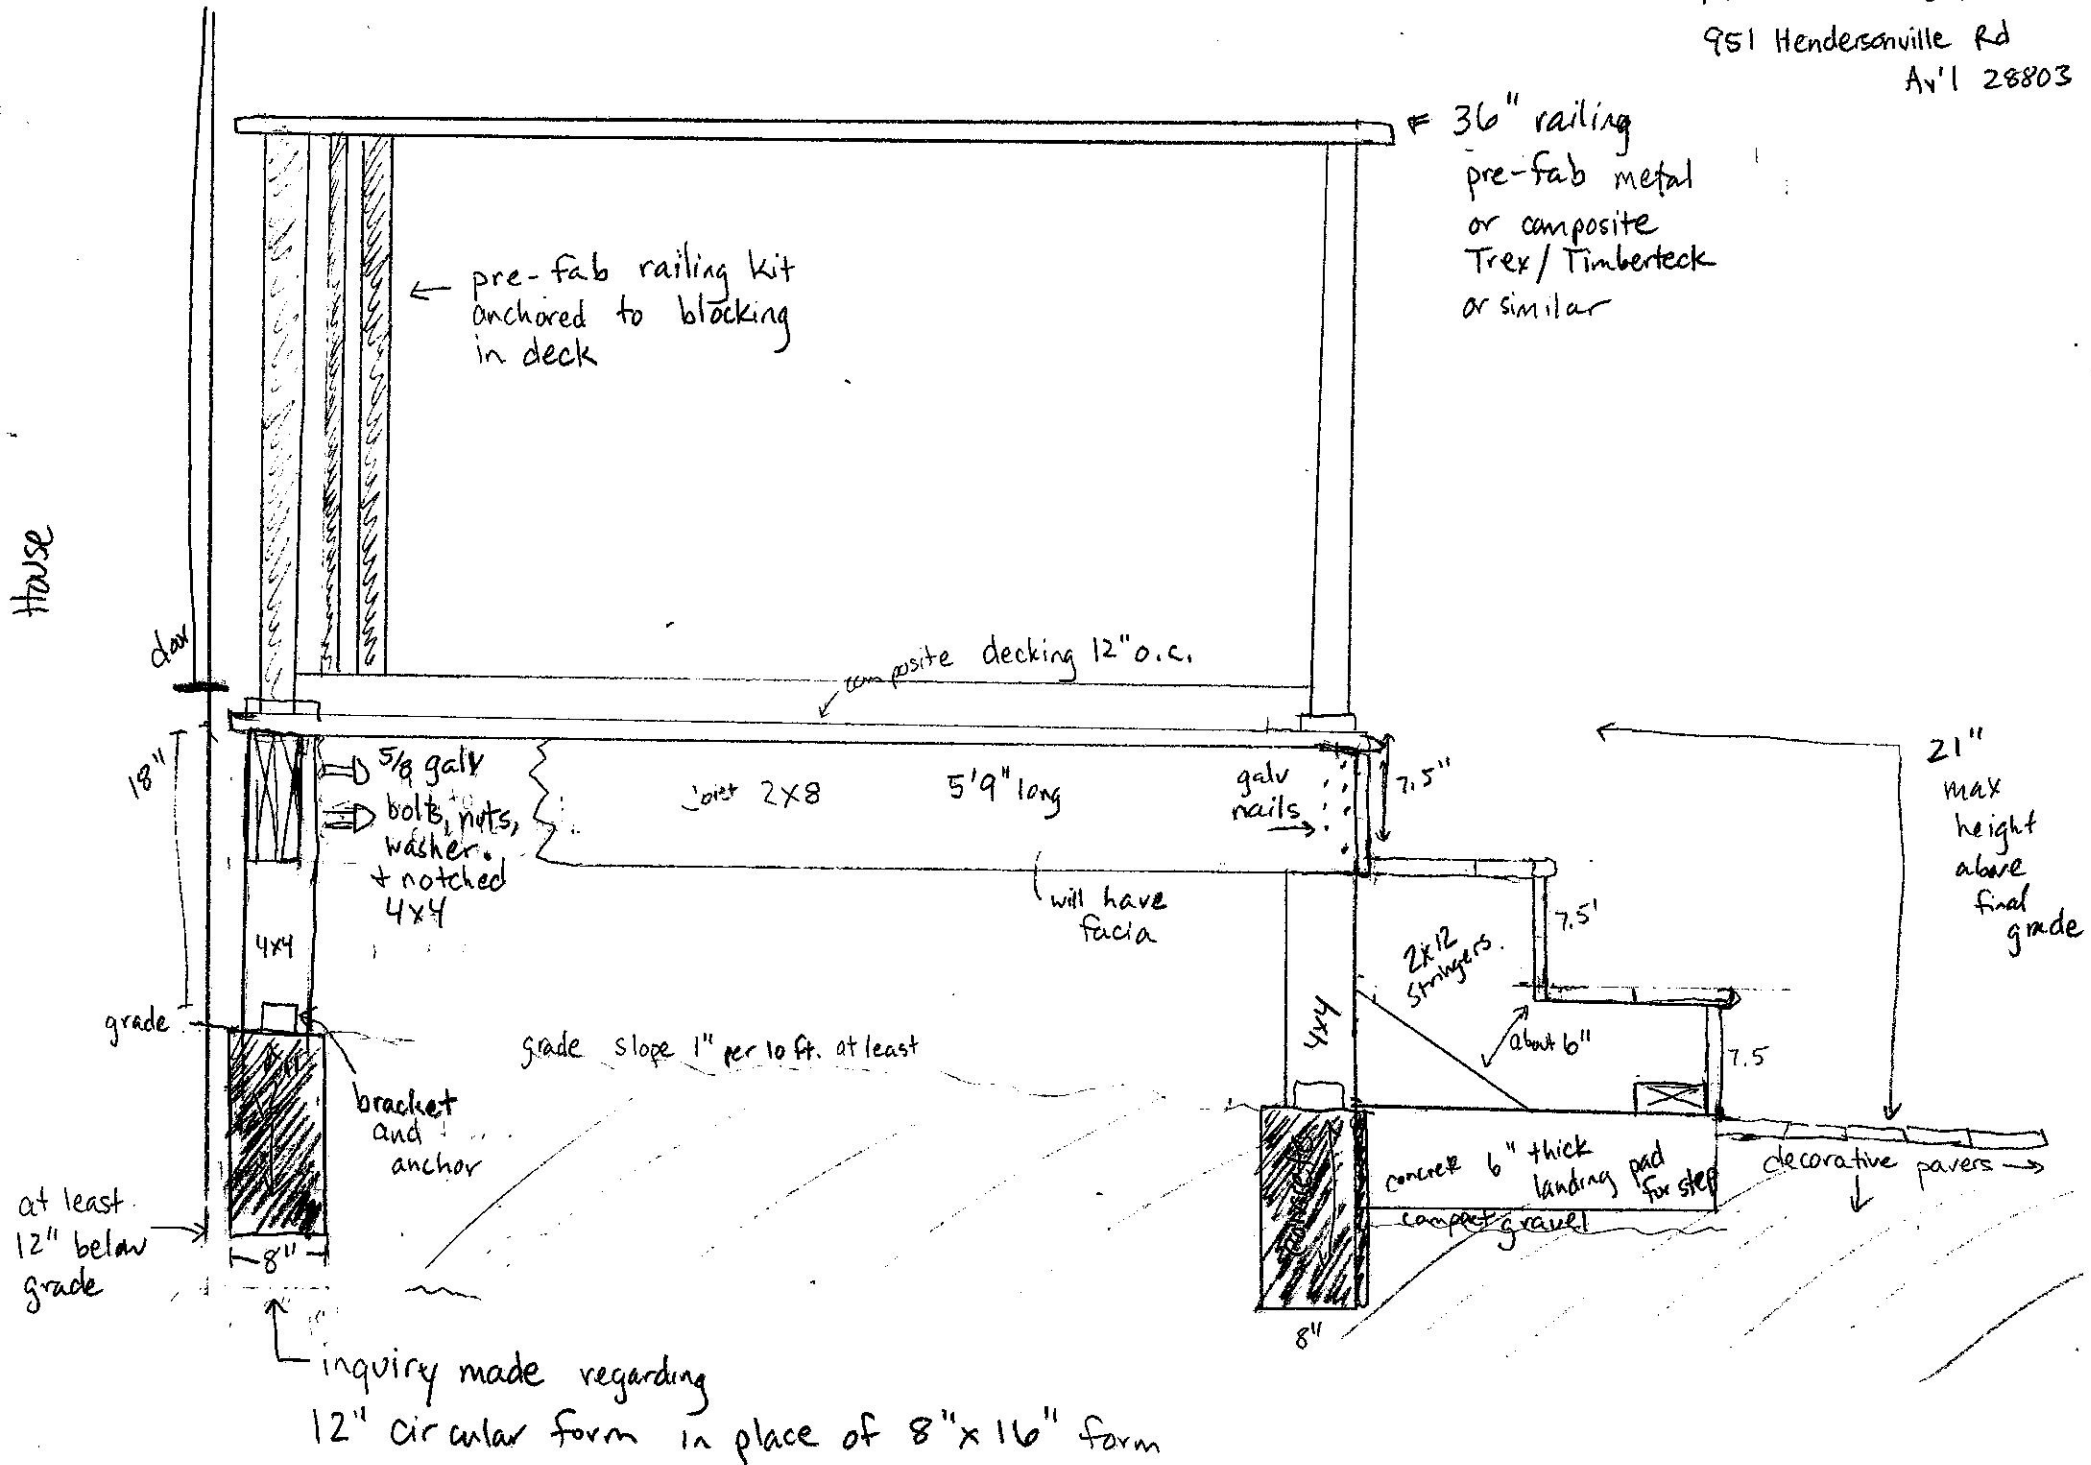 951 Hendersonville Rd
Av'l 28803
36" railing
pre-fab metal
or composite
Trex/Timberteck
or similar
pre-fab railing kit
anchored to blocking
in deck
House
door
composite decking 12" o.c.
18"
5/8 galv
bolts, nuts,
washer.
+ notched
4x4
joist 2x8 5'9" long
galv
nails
7.5"
21"
max
height
above
final
grade
will have
facia
7.5'
2x12
stringers.
4x4
4x4
grade
grade slope 1" per 10 ft. at least
about 6"
7.5
bracket
and
anchor
concrete 6" thick
landing pad
for step
decorative pavers
compact gravel
at least
12" below
grade
8"
8"
inquiry made regarding
12" circular form in place of 8"x16" form